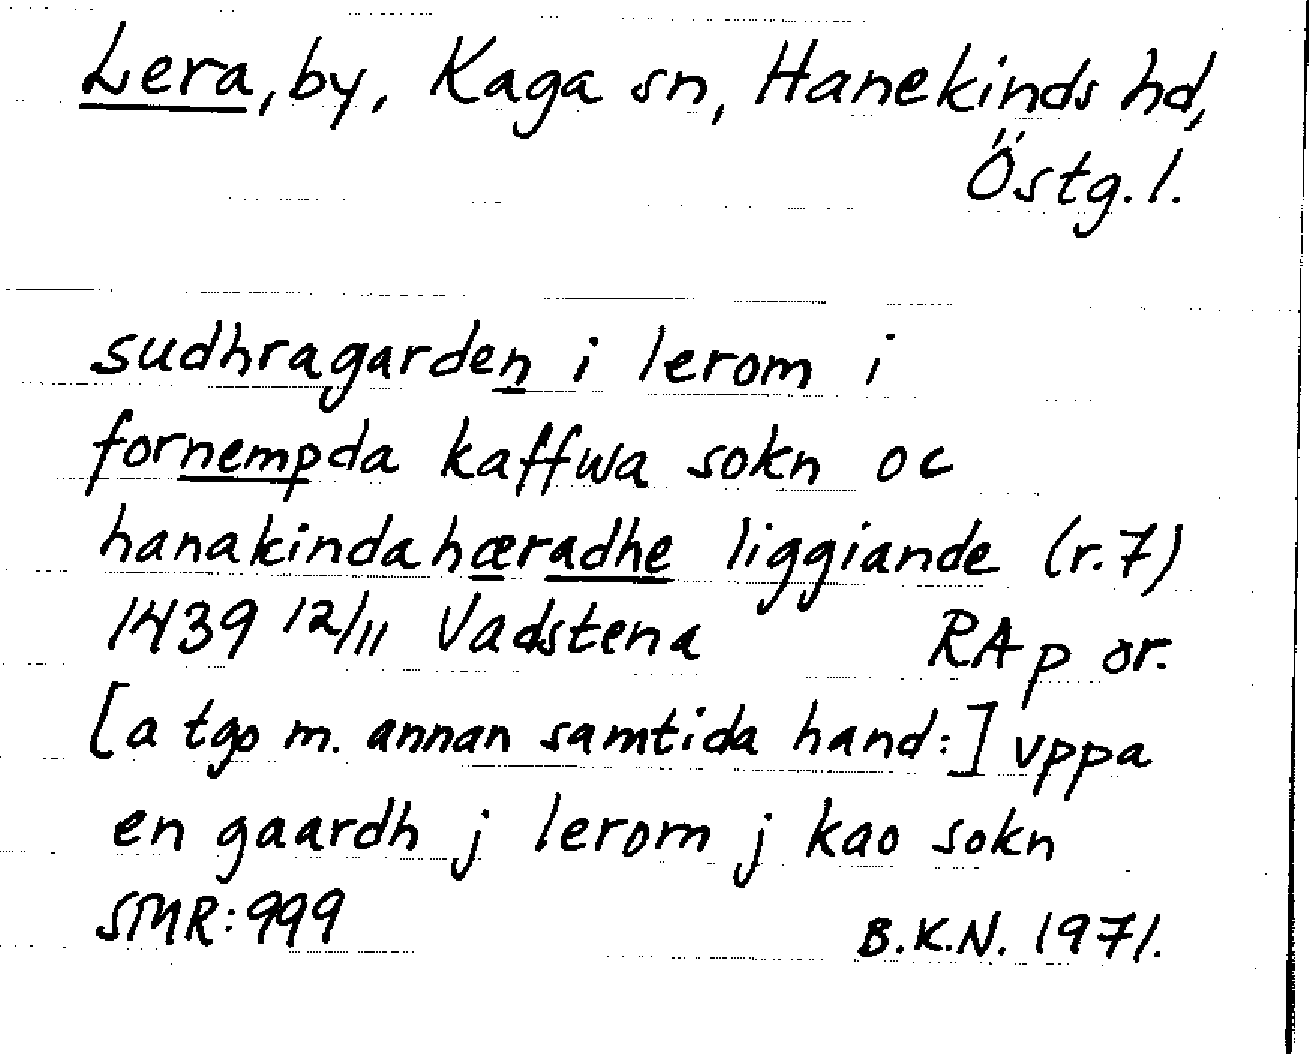 Lera, by, Kaga sn, Hanekinds hd,
Östg. l.
sudhragarden i lerom i
fornempda kaffwa sokn oc
hanakindahæradhe liggiande (r.7)
1439 12/11 Vadstena RAp or.
[a tgo m. annan samtida hand:] vppa
en gaardh j lerom j kao sokn
SMR: 999 B.K.N. 1971.